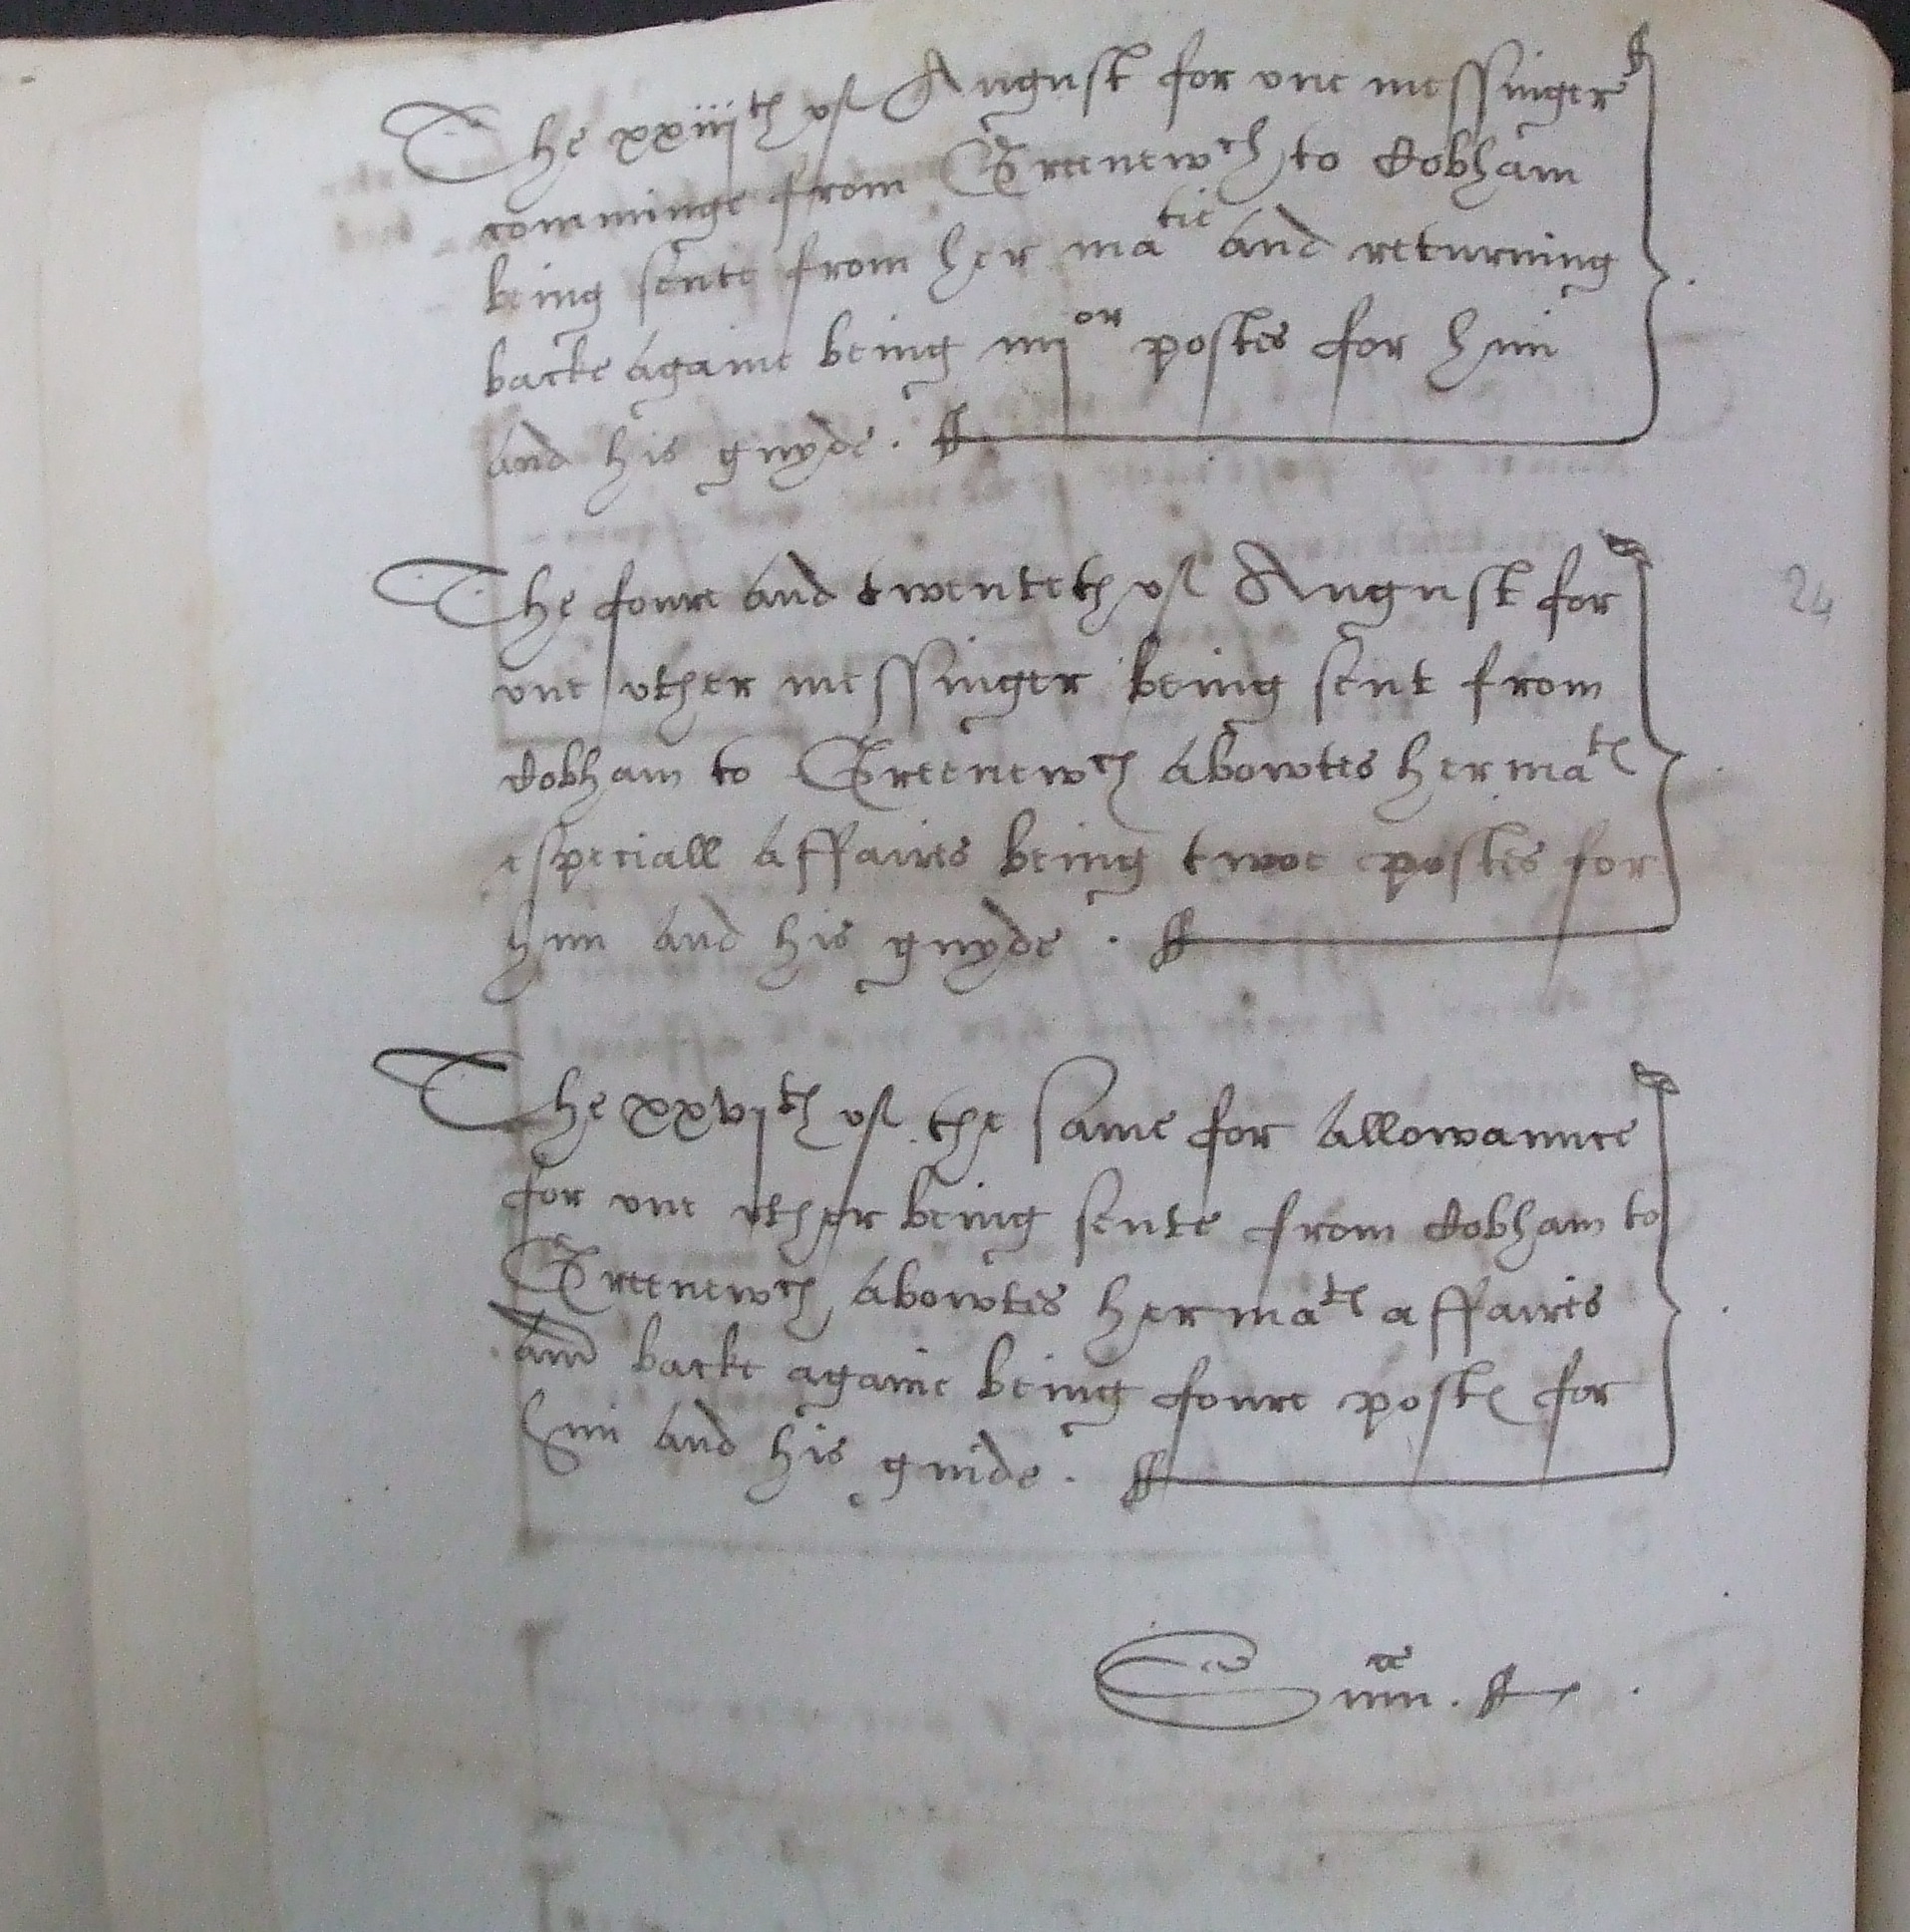 The xxiiijth of August for one messinger
comminge from Greenewch to Cobham
being sente from her matie and returning
backe againe being iiijor postes for him
and his guyde.
The foure and twenteth of August for
one other messinger being sent from
Cobham to Greenewch abowtes her mates
especiall affaires being twoe postes for
him and his guyde.
24
The xxvjth of the same for allowannce
for one other being sente from Cobham to
Greenewch abowtes her mates affaires
and backe againe being foure postes for
him and his guide.
Summa.